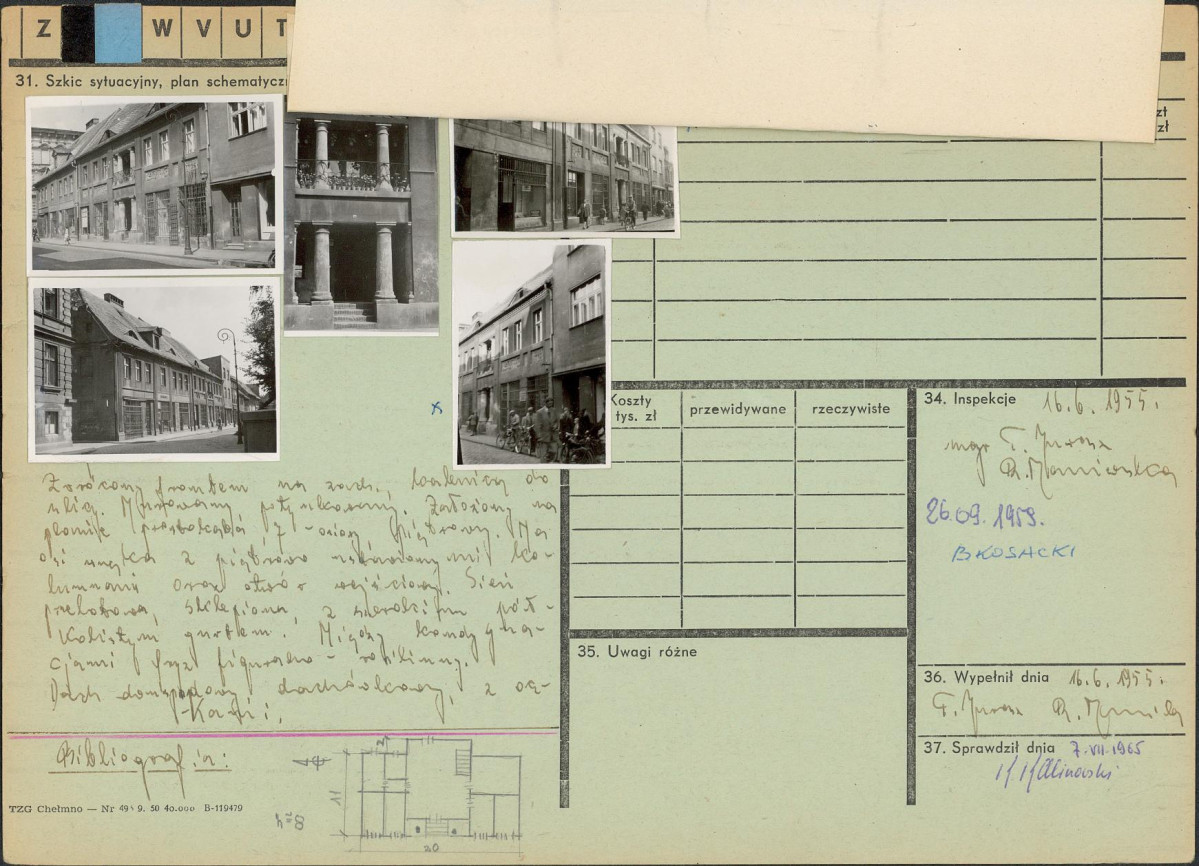 Z W V U T
31. Szkic sytuacyjny, plan schematycz
zł
zł
Koszty przewidywane rzeczywiste
tys. zł
34. Inspekcje 16.6.1955.
mgr F.
26.09.1959.
B KOSACKI
Zwrócony frontem na zach., kalenicą do
ulicy. Murowany, potynkowany. Założony na
planie prostokąta, 7-osiowy, piętrowy. Na
osi wnęka z piętrowo ustawionymi ko-
lumnami oraz otwór wejściowy. Sień
przelotowa, sklepiona, z szerokim pół-
kolistym gurtem. Między kondygna-
cjami fryz figuralno-roślinny.
Dach dwuspadowy, dachówkowy, z oc-
kami.
35. Uwagi różne
36. Wypełnił dnia 16.6.1955.
F. R.
37. Sprawdził dnia 7.VII.1965
Kalinowski
Bibliografia:
TZG Chełmno — Nr 9. 50 40.000 B-119479
11
h=8
20